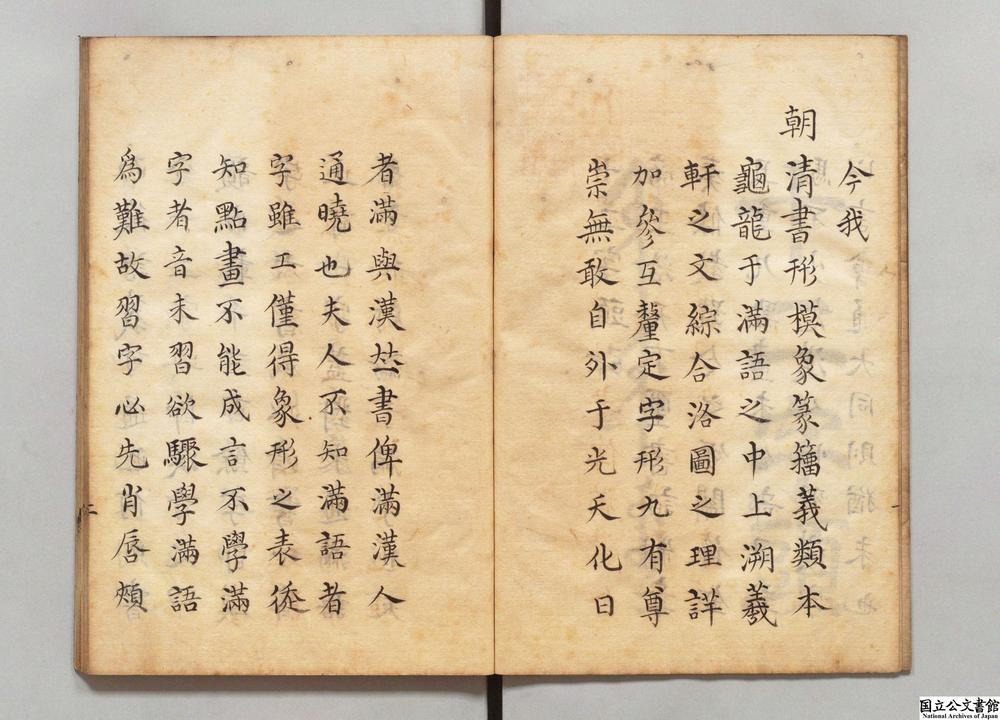 今我
朝清書形模象篆籀義類本
龜龍于滿語之中上溯羲
軒之文綜合洛圖之理詳
加參互釐定字形九有尊
崇無敢自外于光天化日
者滿與漢竝書俾滿漢人
通曉也夫人不知滿語者
字雖工僅得象形之表徒
知點畫不能成言不學滿
字者音未習欲驟學滿語
爲難故習字必先肖唇頰
一
二
国立公文書館
National Archives of Japan